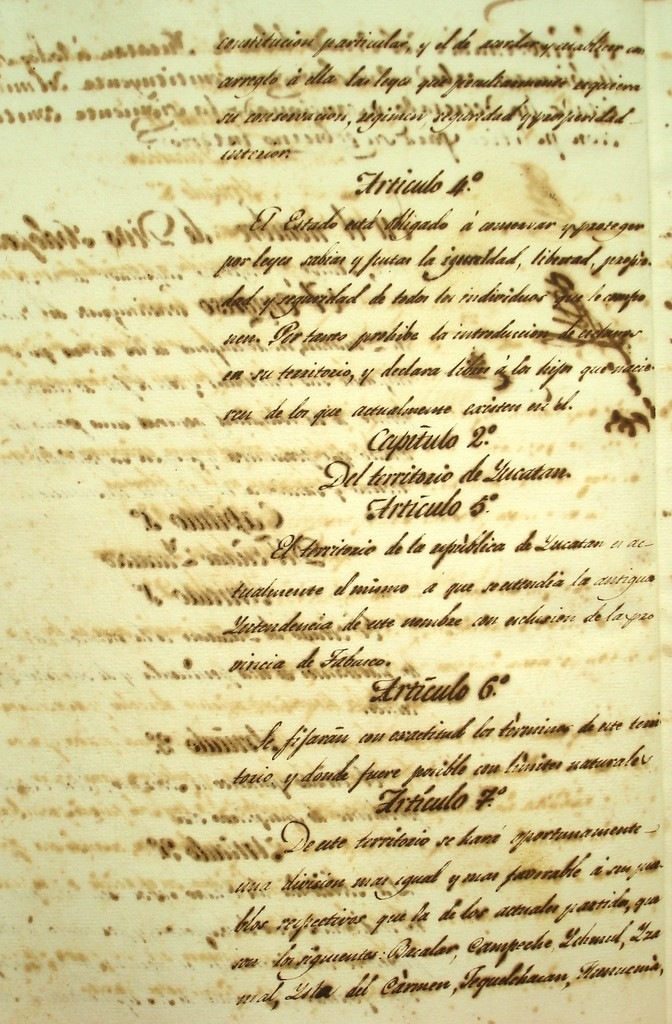 constitucion particular, y el de acordar y establecer con
arreglo á ella las leyes que precisamente requiera
su conservacion, régimen seguridad y prosperidad
interior.
Articulo 4.º
El Estado está obligado á conservar y proteger
por leyes sabias y justas la igualdad, libertad, propie-
dad y seguridad de todos los individuos que le compo-
nen. Por tanto prohibe la introduccion de esclavos
en su territorio, y declara libres á los hijos que nacie-
ren de los que actualmente existen en él.
Capítulo 2.º
Del territorio de Yucatan.
Artículo 5.º
El territorio de la república de Yucatan es ac-
tualmente el mismo a que se estendia la antigua
Yntendencia de este nombre con esclusion de la pro
vincia de Tabasco.
Artículo 6.º
Se fijarán con exactitud los términos de este terri
torio y donde fuere posible con límites naturales
Artículo 7.º
De este territorio se hará oportunamente
una division mas igual y mas favorable á sus pue
blos respectivos que la de los actuales partidos, que
son los siguientes: Bacalar, Campeche, Ychmul, Yza
mal, Ysla del Cármen, Jequelchacan, Hunucmá,